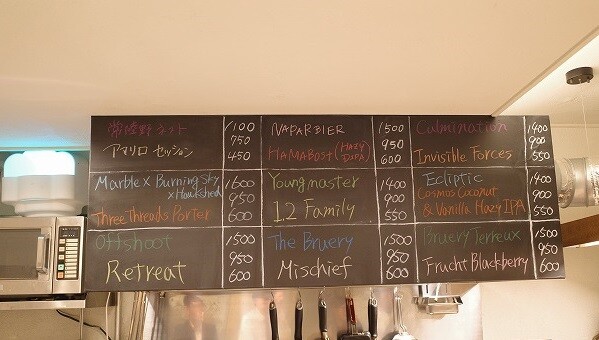 常陸野ネスト
アマリロ セッション
1100
750
450
NAPARBIER
HAMABOST (HAZY DIPA)
1500
950
600
Culmination
Invisible Forces
1400
900
550
Marble x Burning Sky
x Hawkshead
Three threads Porter
1600
950
600
Young master
1.2 Family
1400
900
550
Ecliptic
Cosmos Coconut
& Vanilla Hazy IPA
1400
900
550
Offshoot
Retreat
1500
950
600
The Bruery
Mischief
1500
950
600
Bruery Terreux
Frucht Blackberry
1500
950
600